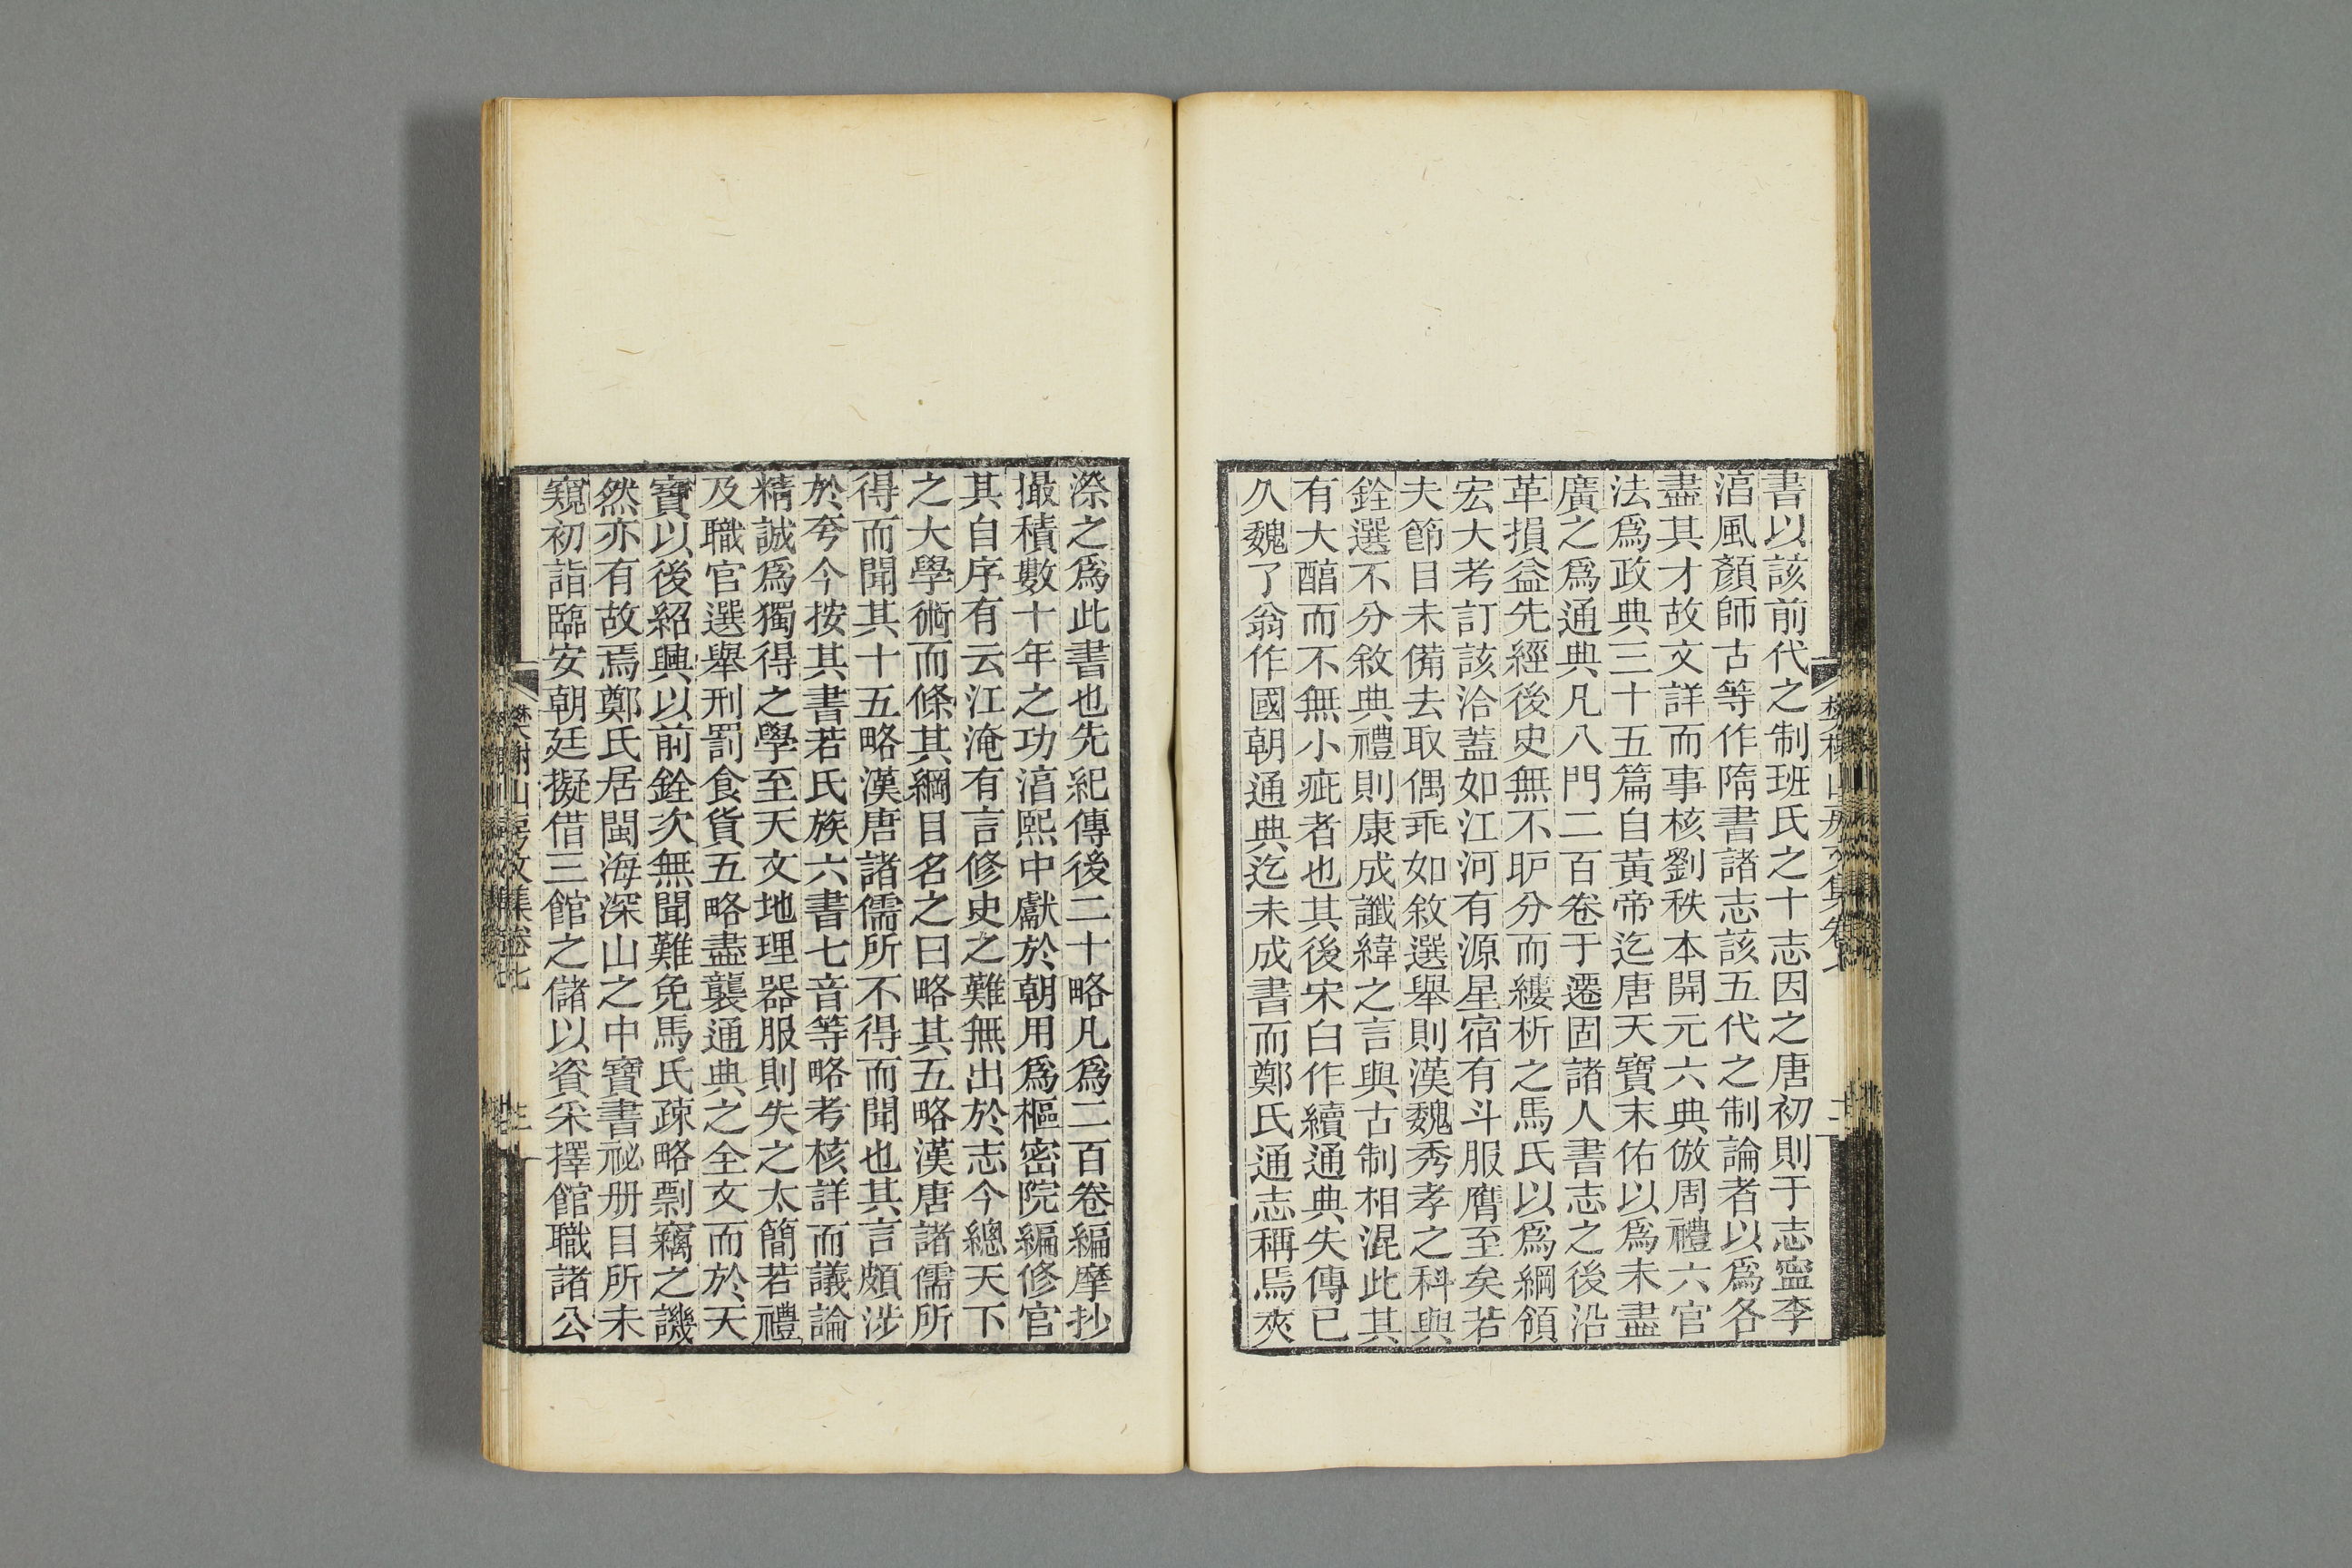 書以該前代之制班氏之十志因之唐初則于志寧李
湻風顏師古等作隋書諸志該五代之制論者以爲各
盡其才故文詳而事核劉秩本開元六典倣周禮六官
法爲政典三十五篇自黃帝迄唐天寶末佑以爲未盡
廣之爲通典凡八門二百卷于遷固諸人書志之後沿
革損益先經後史無不胪分而縷析之馬氏以爲綱領
宏大考訂該洽蓋如江河有源星宿有斗服膺至矣若
夫節目未備去取偶乖如敘選舉則漢魏秀孝之科與
銓選不分敘典禮則康成讖緯之言與古制相混此其
有大醕而不無小疵者也其後宋白作續通典失傳已
久魏了翁作國朝通典迄未成書而鄭氏通志稱焉夾
漈之爲此書也先紀傳後二十略凡爲二百卷編摩抄
撮積數十年之功湻熙中獻於朝用爲樞密院編修官
其自序有云江淹有言修史之難無出於志今總天下
之大學術而條其綱目名之曰略其五略漢唐諸儒所
得而聞其十五略漢唐諸儒所不得而聞也其言頗涉
於夸今按其書若氏族六書七音等略考核詳而議論
精誠爲獨得之學至天文地理器服則失之太簡若禮
及職官選舉刑罰食貨五略盡襲通典之全文而於天
寶以後紹興以前銓次無聞難免馬氏疎略剽竊之譏
然亦有故焉鄭氏居閩海深山之中寶書祕册目所未
窺初詣臨安朝廷擬借三館之儲以資采擇館職諸公
樊榭山房文集卷七